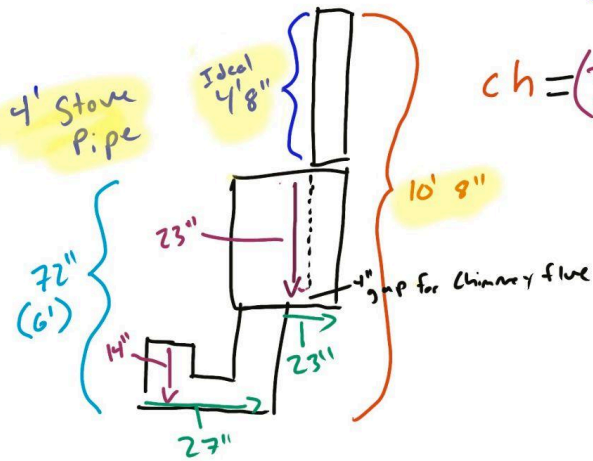 4' Stove
Pipe
Ideal
4'8"
ch = (
10' 8"
23"
72"
(6')
4"
gap for chimney flue
14"
23"
27"